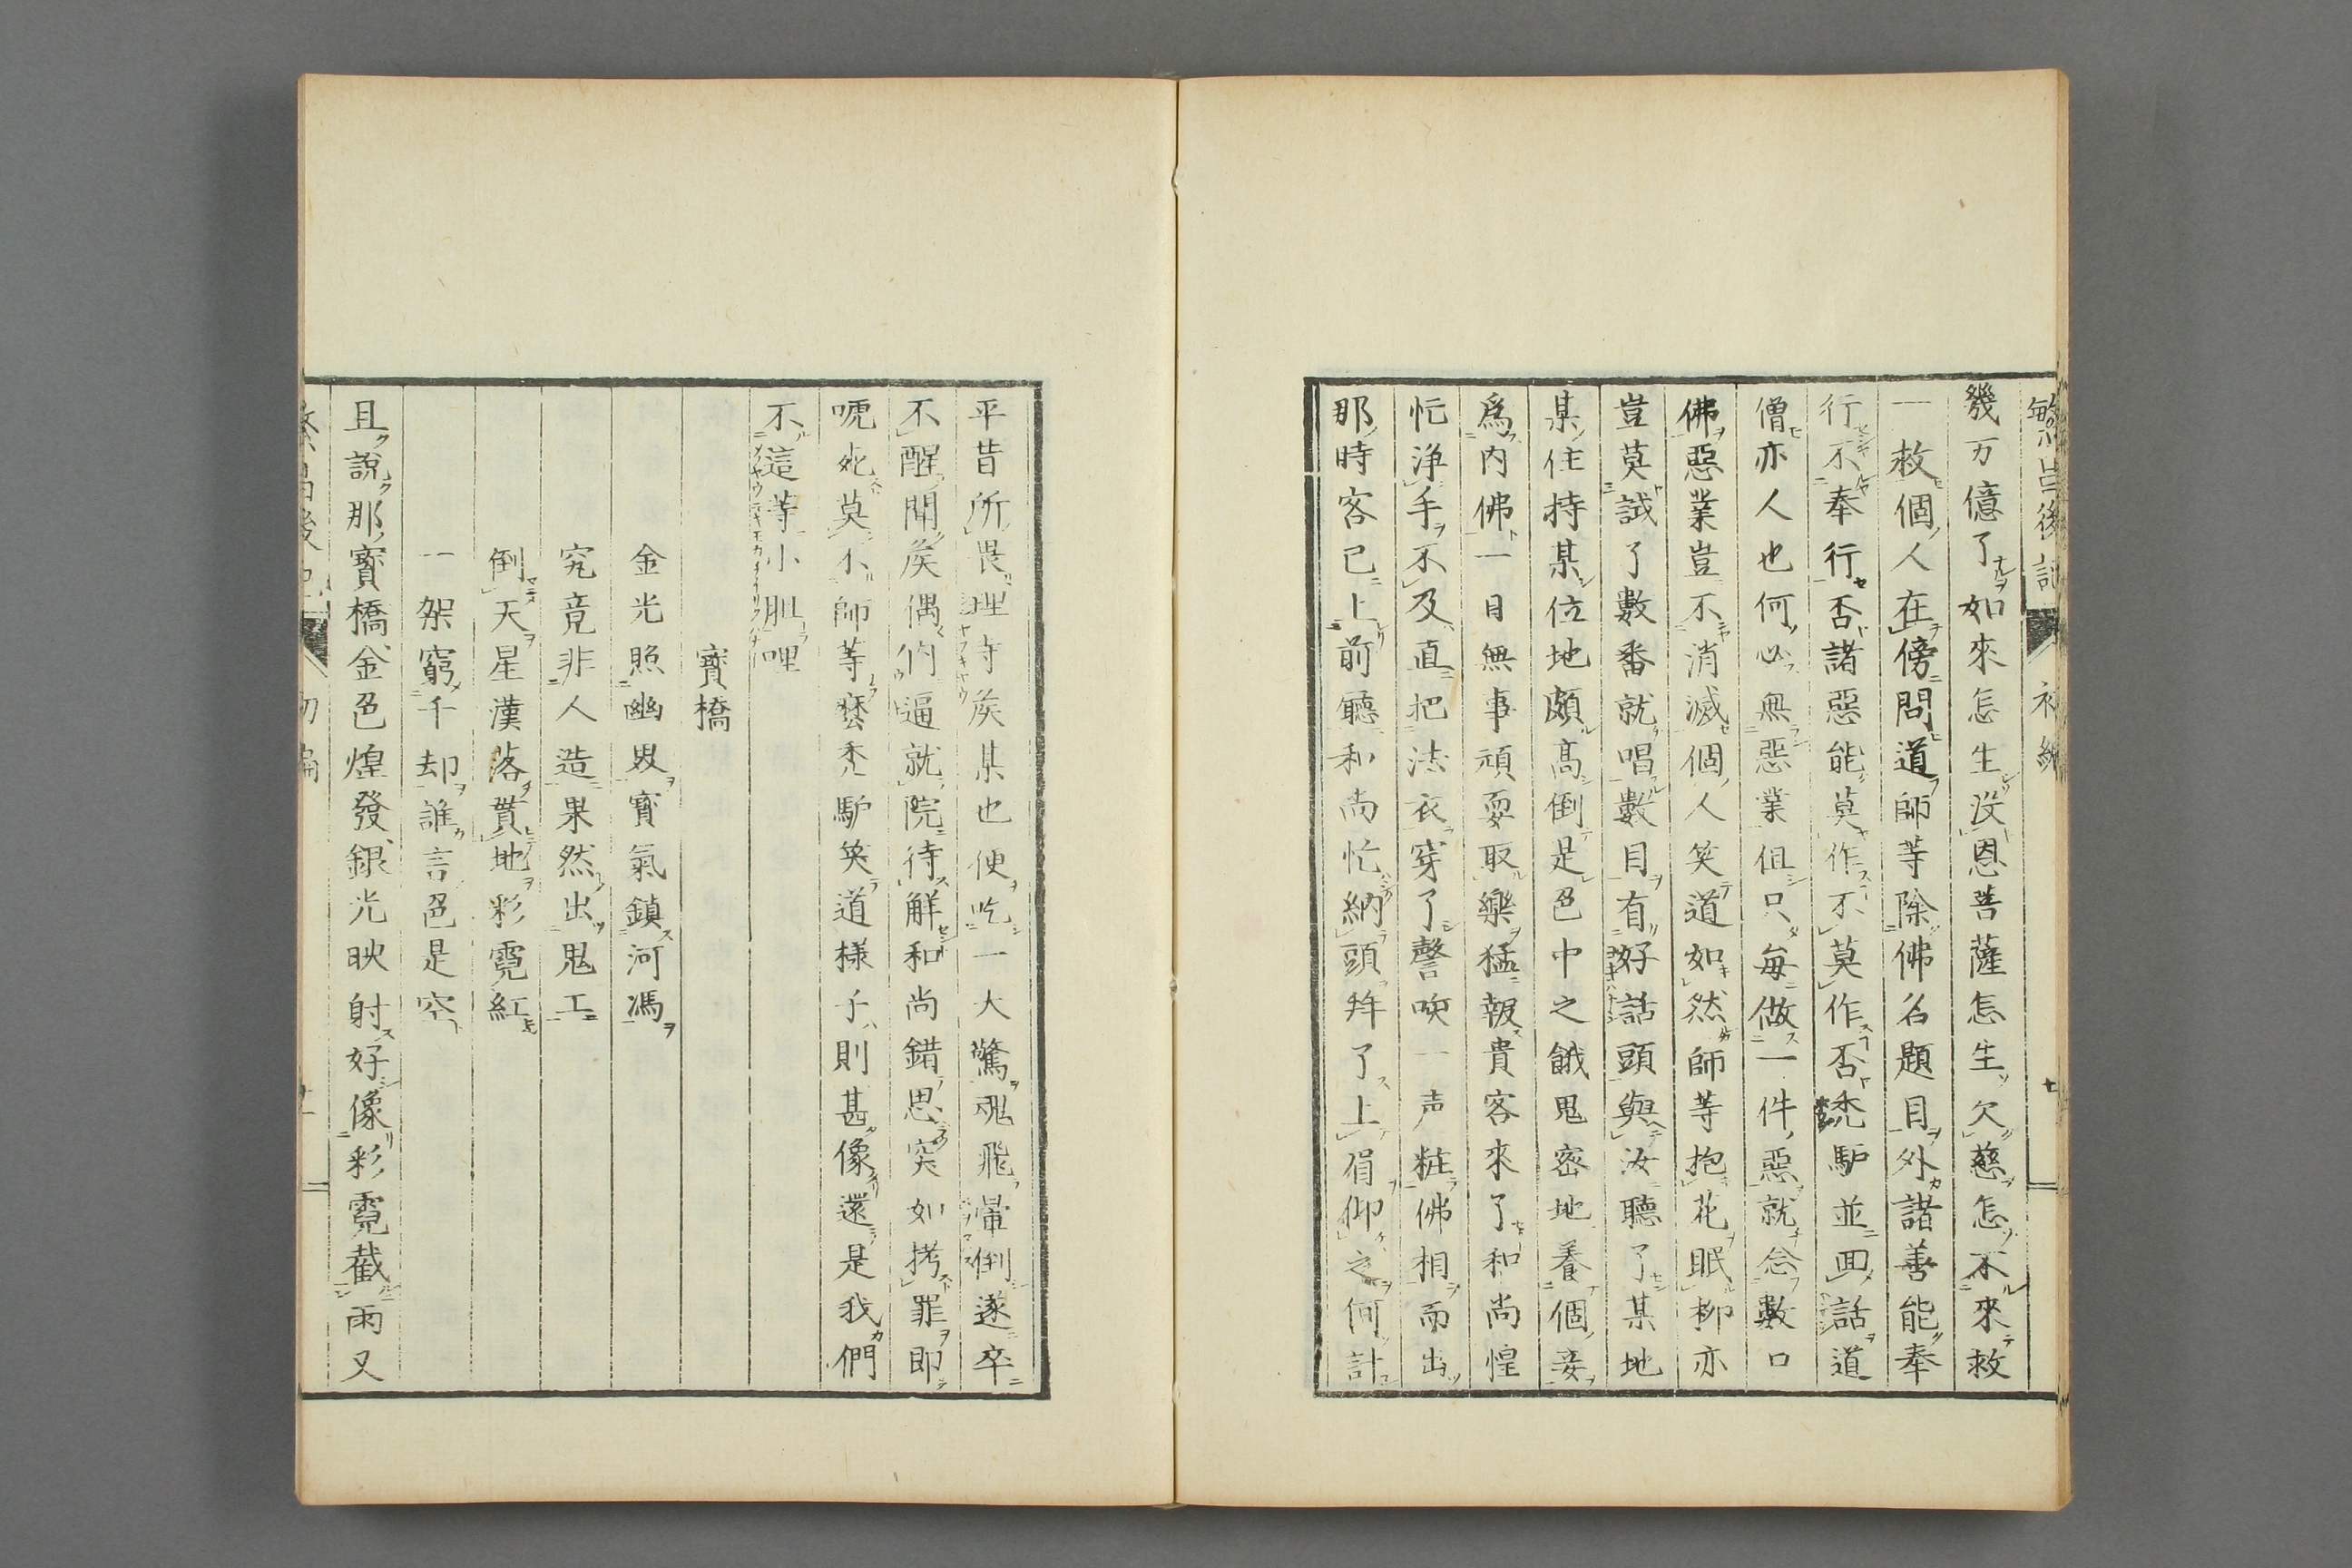 繁昌後記 初編 七
幾万億了如來怎生没恩菩薩怎生欠慈怎不來救
一救個人在傍問道師等除佛名題目外諸善能奉
行不奉行否諸惡能莫作不莫作否禿驢並回話道
僧亦人也何必無惡業但只每做一件惡就念數口
佛惡業豈不消滅個人笑道如然師等抱花眠柳亦
豈莫誡了數番就唱數目有好話頭與汝聽了某地
某住持某位地頗高倒是色中之餓鬼密地養個妾
爲内佛一日無事頑耍取樂猛報貴客來了和尚惶
忙浄手不及直把法衣穿了謦咳一声粧佛相而出
那時客已上前聽和尚忙納頭拜了上眉仰之何計
平昔所畏理寺矦某也便吃一大驚魂飛暈倒遂卒
不醒聞矦偶們逼就院待解和尚錯思突如拷罪即
唬死莫不師等麼禿驢笑道樣子則甚像還是我們
不這等小胆哩
寳橋
金光照幽界寳氣鎮河馮
究竟非人造果然出鬼工
倒天星漢落貫地彩霓紅
一架窮千却誰言色是空
且說那寳橋金色煌發銀光映射好像彩霓截雨又